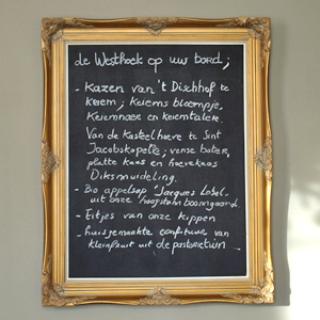 de Westhoek op uw bord;
- Kazen van 't Dischhof te
keiem; keiems bloempje,
Keiemnaer en keiemtaler.
Van de kasteelhoeve te Sint
Jacobskapelle; verse boter,
platte kaas en hoevekaas
Diksmuideling.
- Bio appelsap "Jacques Lobel"-
uit onze hoogstam boomgaard.
- Eitjes van onze kippen
- huisgemaakte confituur van
kleinfruit uit de pastorietuin